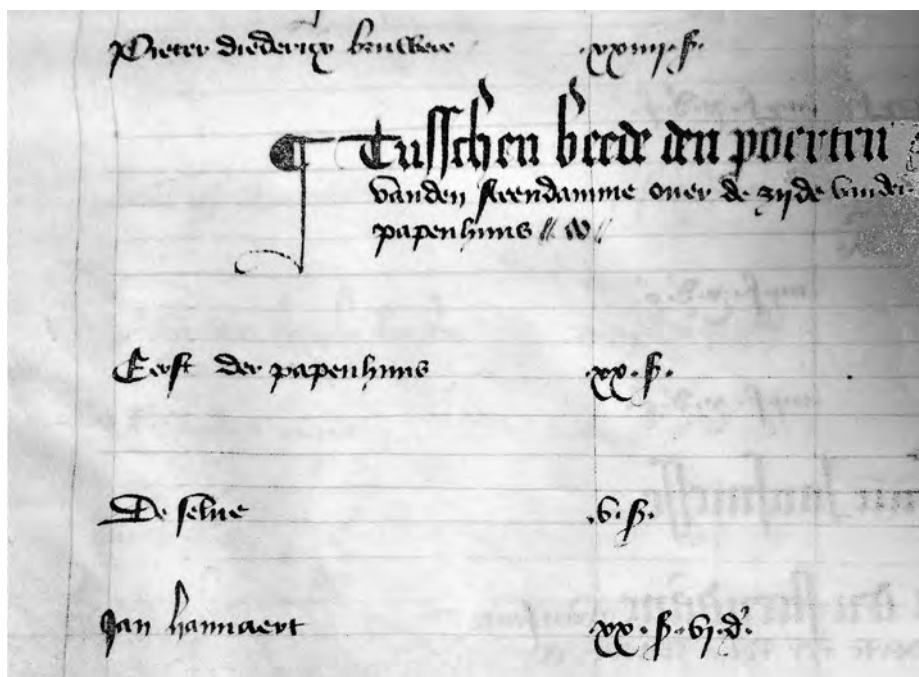 Pieter diederixz brauwere .xxiiij. ß.
Tusschen beede den poerten
vanden steendamme ouer de zijde vander
papenhuus
Eerst der papenhuus .xx. ß.
De selue .v. ß.
Jan hannaert .xx. ß. vj. d.